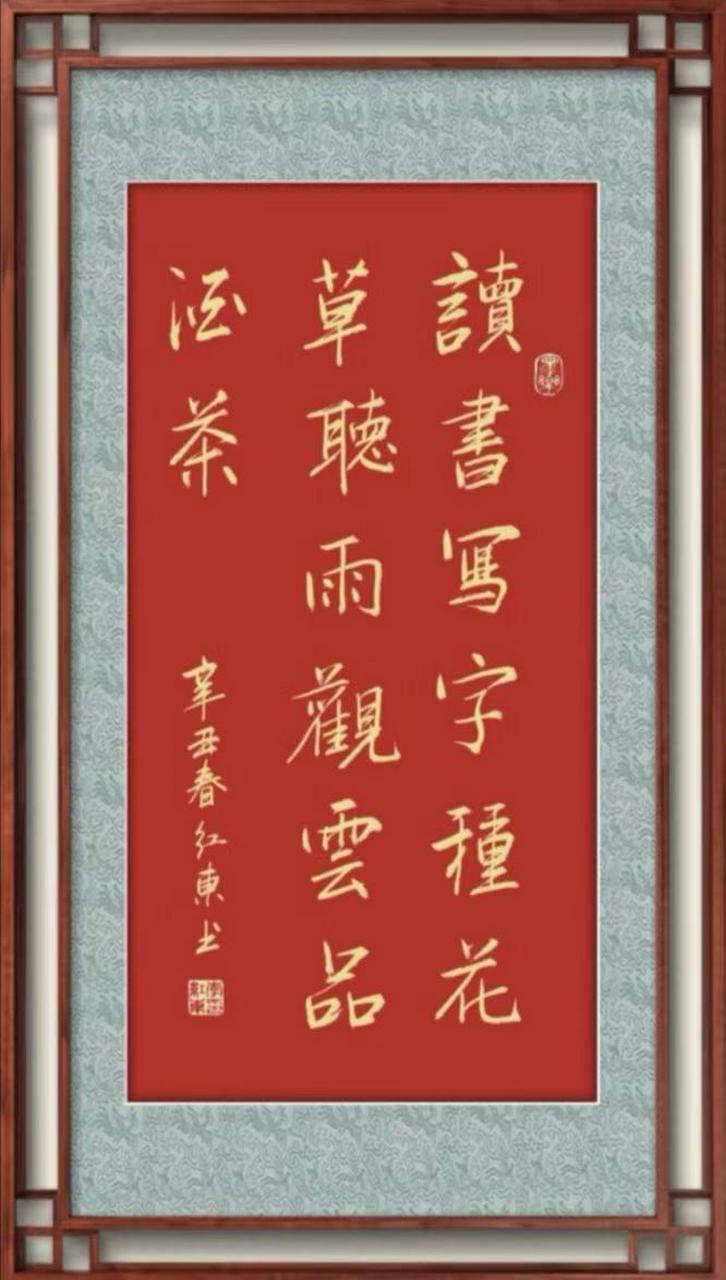 讀書寫字種花
草聽雨觀雲品
酒茶
辛丑春紅東书